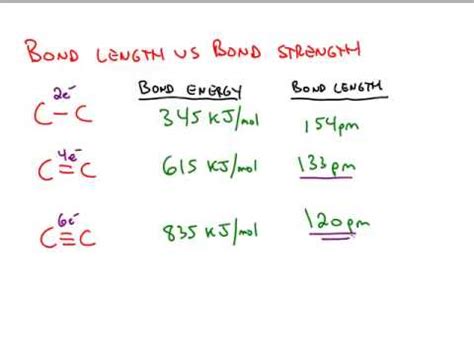 BOND LENGTH VS BOND STRENGTH
BOND ENERGY BOND LENGTH
2e⁻
C–C 345 KJ/mol 154pm
4e⁻
C=C 615 KJ/mol 133pm
6e⁻
C≡C 835 KJ/mol 120pm